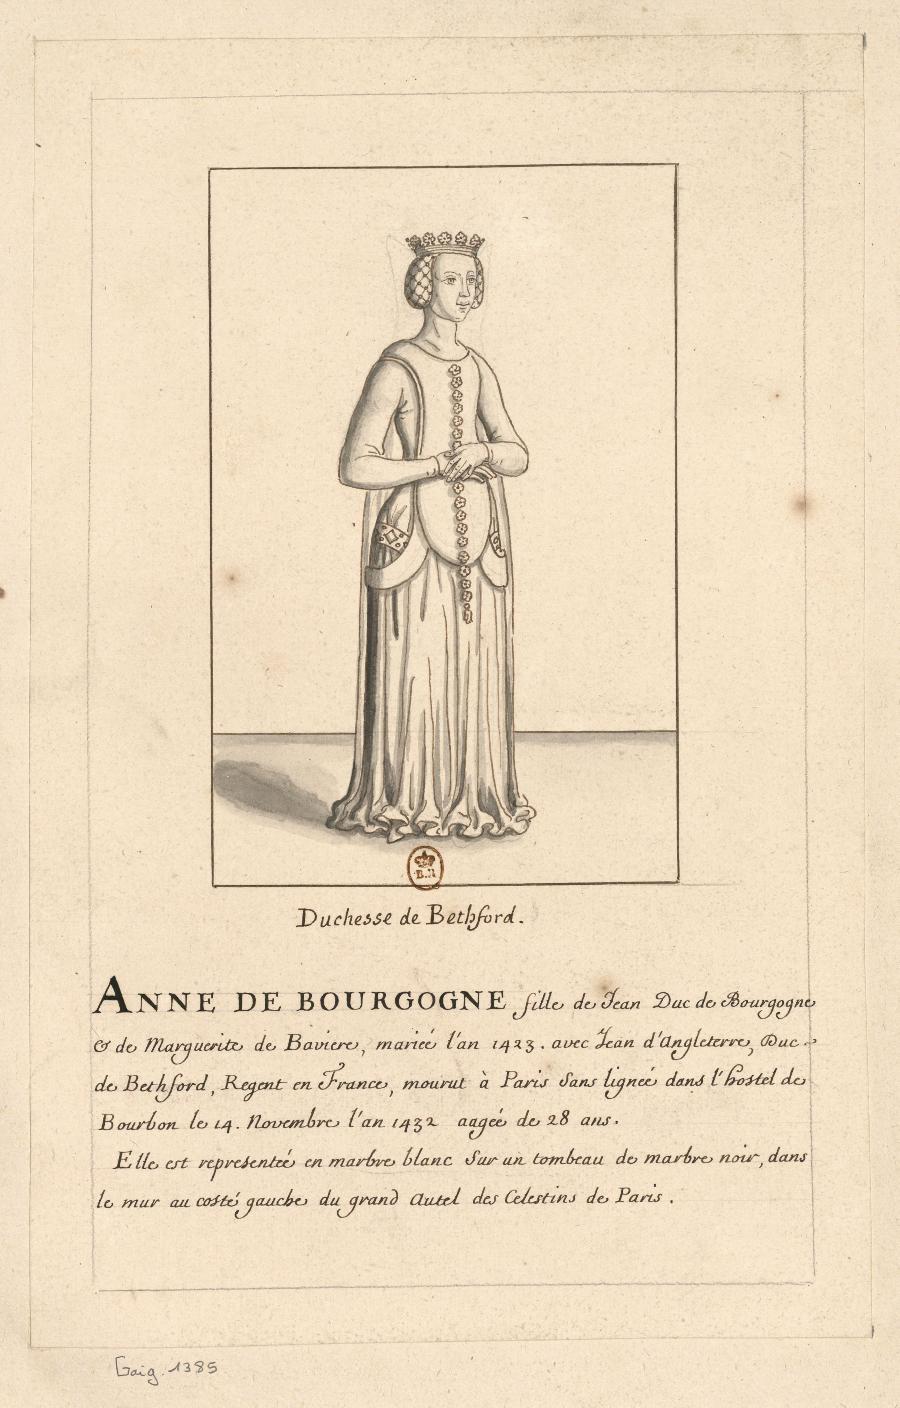 B.R
Duchesse de Bethford.
ANNE DE BOURGOGNE fille de Jean Duc de Bourgogne
& de Marguerite de Baviere, mariée l'an 1423. avec Jean d'Angleterre, Duc
de Bethford, Regent en France, mourut à Paris sans lignée dans l'hostel de
Bourbon le 14. Novembre l'an 1432 aagée de 28 ans.
Elle est representée en marbre blanc sur un tombeau de marbre noir, dans
le mur au costé gauche du grand Autel des Celestins de Paris.
Gaig. 1385